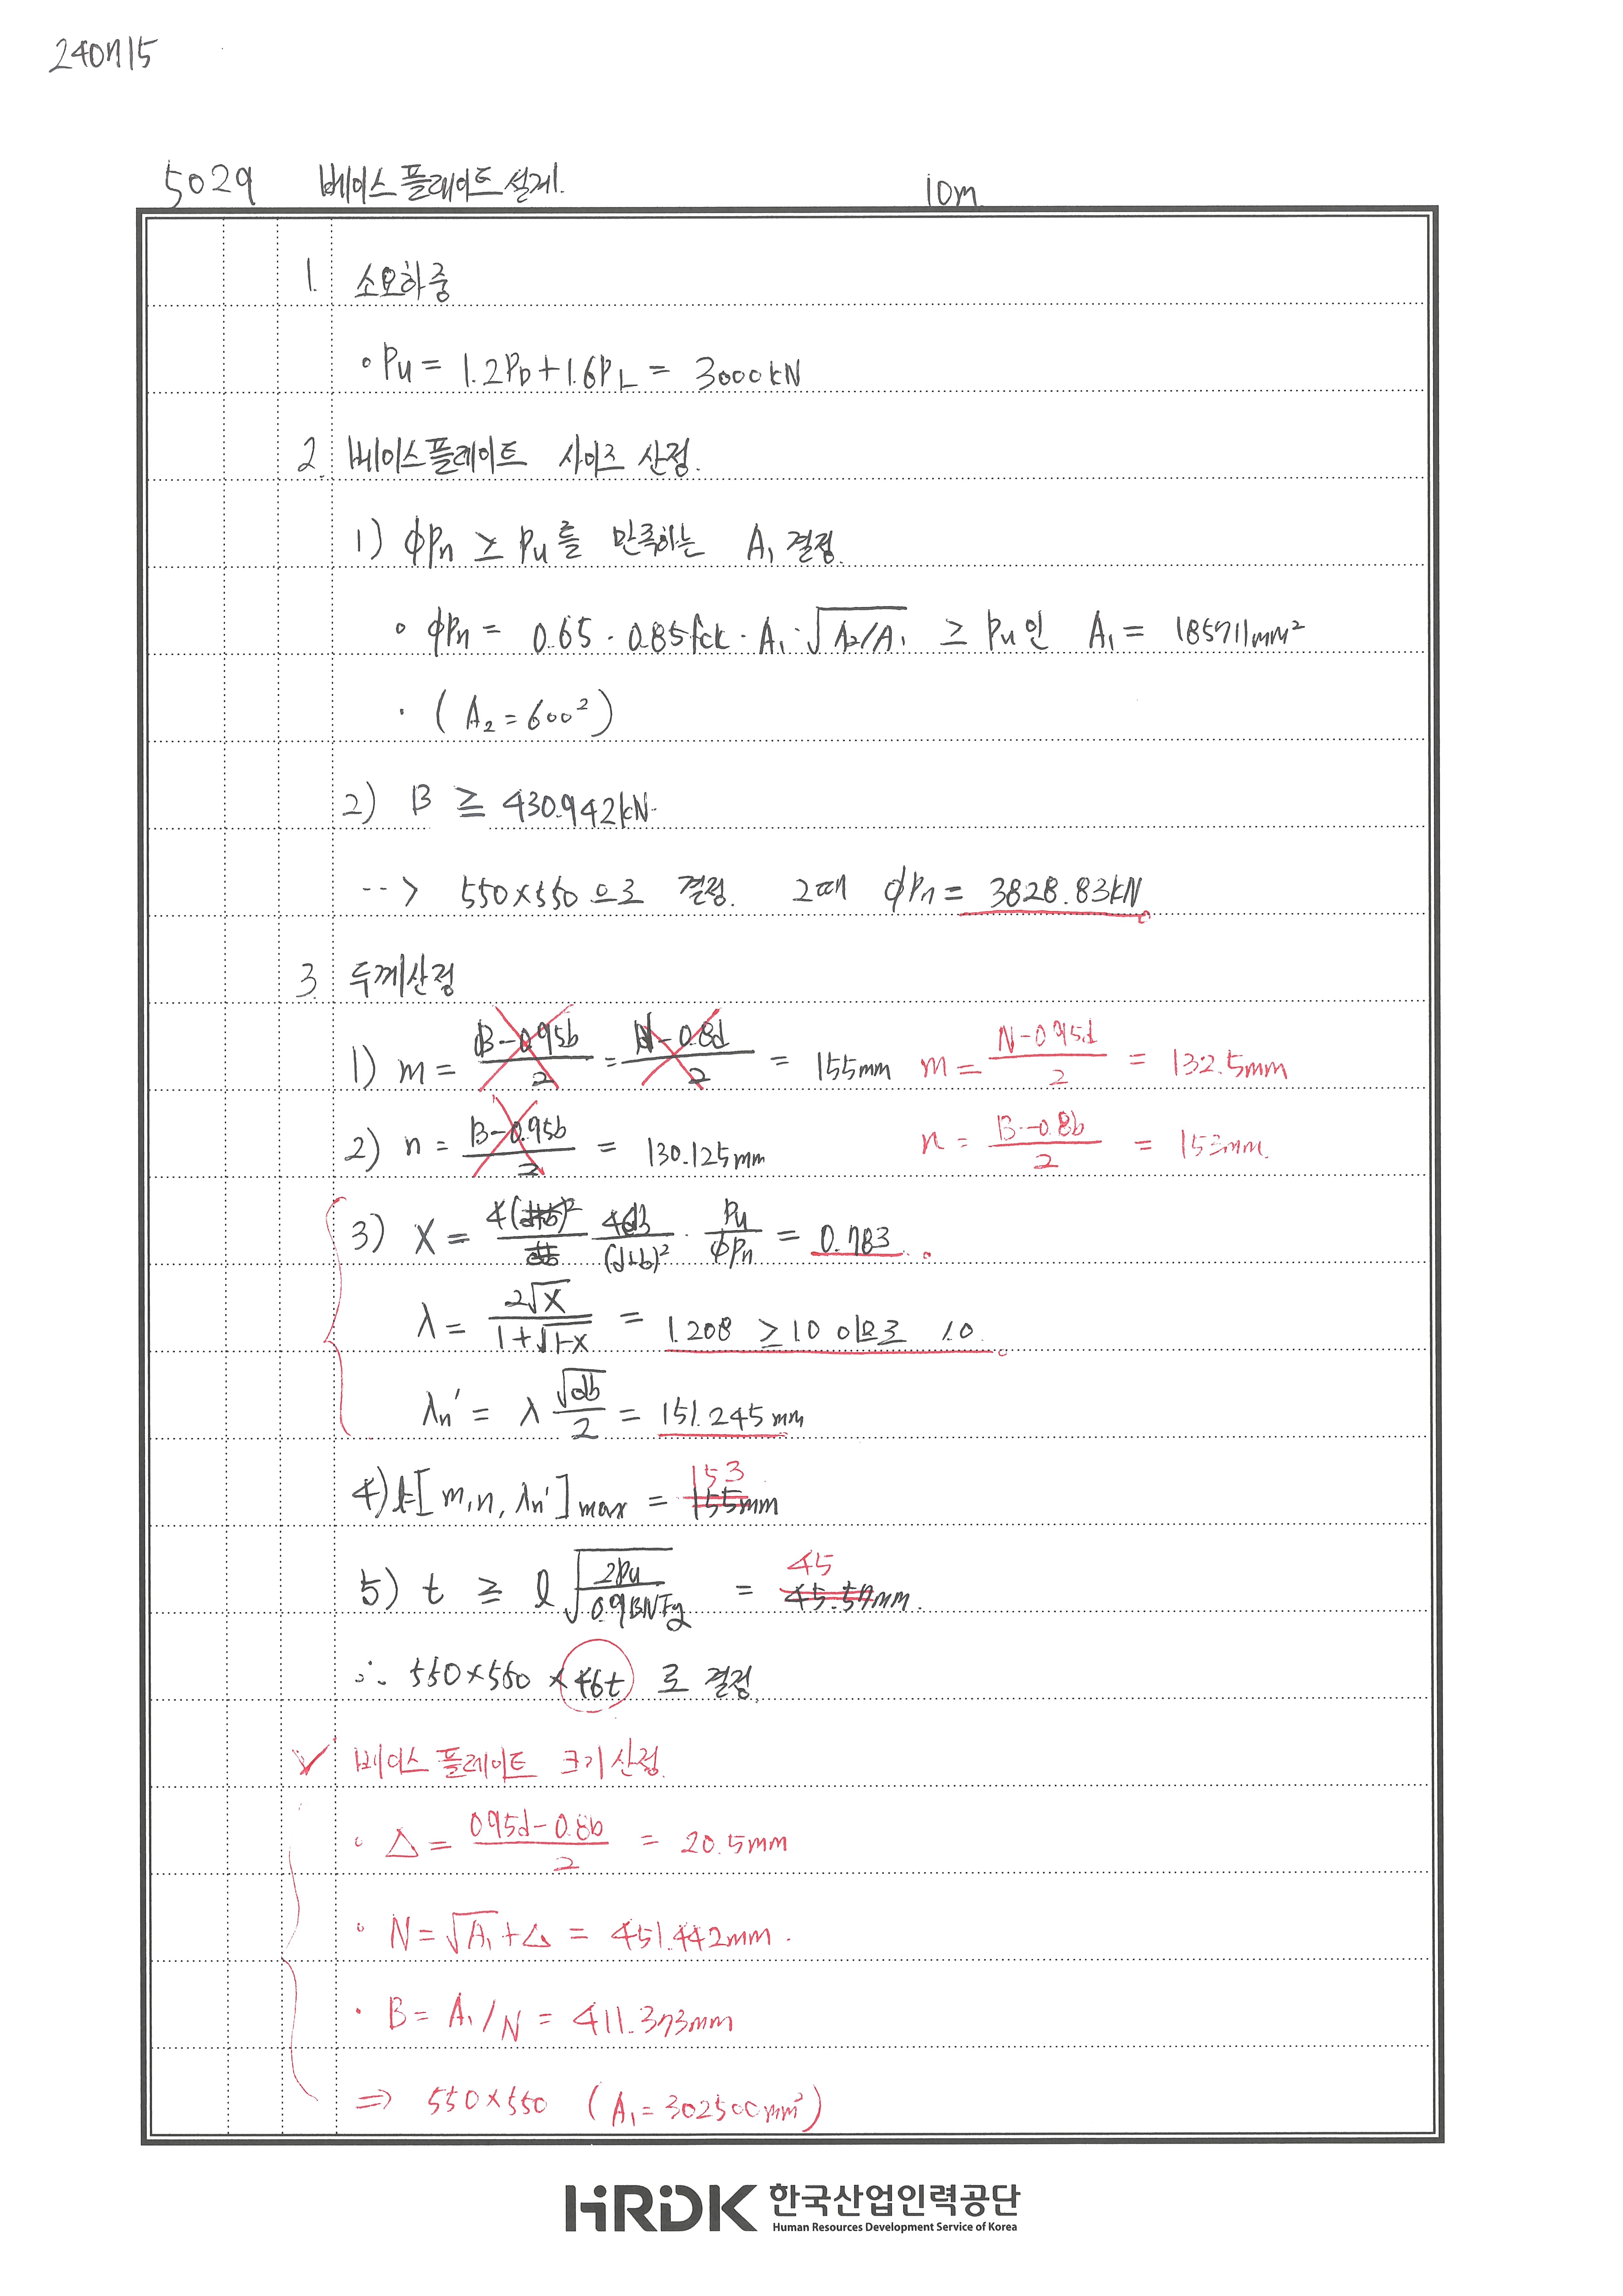 240715
5029 베이스플레이트 설계. 10m
1. 소요하중
• Pu = 1.2PD + 1.6PL = 3000kN
2. 베이스플레이트 사이즈 산정.
1) ϕPn ≥ Pu를 만족하는 A1 결정.
• ϕPn = 0.65 · 0.85fck · A1 · √(A2/A1) ≥ Pu인 A1 = 185711mm²
· (A2 = 600²)
2) B ≧ 430.942kN.
--> 550×550으로 결정. 그때 ϕPn = 3828.83kN
3. 두께산정
1) m = (B-0.95b)/2 = (N-0.8d)/2 = 155mm m = (N-0.95d)/2 = 132.5mm
2) n = (B-0.95b)/2 = 130.125mm n = (B-0.8b)/2 = 153mm.
3) X = 4(d+b)²/db 4db/(d+b)² · Pu/ϕPn = 0.783
λ = 2√X/(1+√(1-X)) = 1.208 ≥ 1.0 이므로 1.0.
λn' = λ √(db)/2 = 151.245mm
4) ℓ=[m, n, λn']max = 155mm 153
5) t ≥ ℓ √(2Pu/(0.9BNFy)) = 45.57mm. 45
∴ 550×550×46t 로 결정.
✓ 베이스플레이트 크기산정.
• △ = (0.95d-0.8b)/2 = 20.5mm
• N = √A1 + △ = 451.442mm.
• B = A1/N = 411.373mm
⇒ 550×550 (A1 = 302500mm²)
HRDK 한국산업인력공단
Human Resources Development Service of Korea